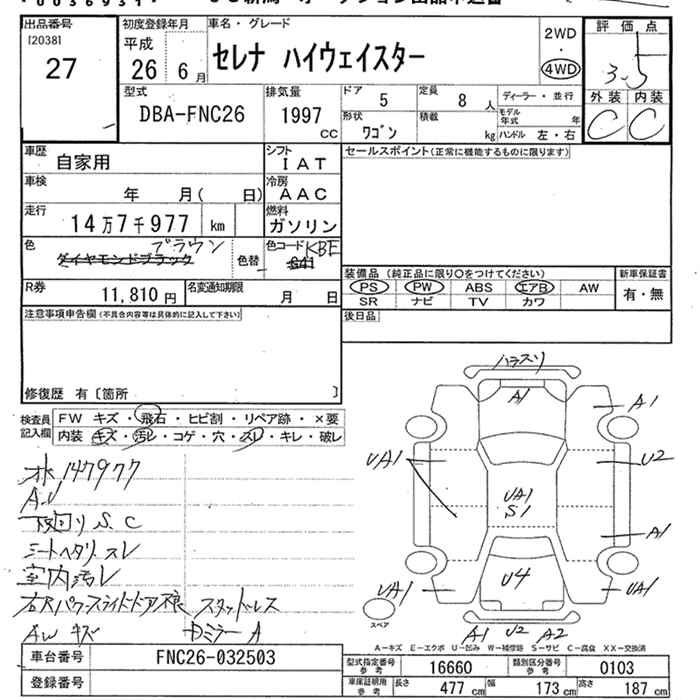 出品番号
[2038]
27
初度登録年月
平成
26 年 6 月
車名・グレード
セレナ ハイウェイスター
2WD
・
4WD
評価点
3.5
外装 内装
C C
型式
DBA-FNC26
排気量
1997 cc
ドア 5
定員 8 人
ディーラー・並行
形状 ワゴン
積載 kg
モデル年式 年
ハンドル 左・右
車歴 自家用
シフト IAT
セールスポイント(正常に機能するものに限ります)
車検 年 月( 日)
冷房 AAC
走行 14万7千977 km
燃料 ガソリン
色 ブラウン
ダイヤモンドブラック
色替
色コード KBE
G41
装備品 (純正品に限り○をつけてください)
新車保証書
PS PW ABS エアB AW
SR ナビ TV カワ
有・無
R券 11,810 円
名変通知期限 月 日
後日品
注意事項申告欄(不具合内容等は具体的に記入して下さい)
修復歴 有〔箇所 〕
検査員記入欄
FW キズ・飛石・ヒビ割・リペア跡・×要
内装 キズ・汚レ・コゲ・穴・スレ・キレ・破レ
水 147977
A.V
下回り S.C
シートヘタリ.スレ
室内汚レ
右パワースライドドア
スタッドレス
AW キズ
Dミラー A
A1
A1
UA1
U2
UA1
S1
A1
UA1
U4
UA1
A1 U2 A2
スペア
A-キズ E-エクボ U-凹み W-補修跡 S-サビ C-腐食 XX-交換済
車台番号 FNC26-032503
登録番号
型式指定番号 参考 16660
類別区分番号 参考 0103
車庫証明用 参考
長さ 477 cm
幅 173 cm
高さ 187 cm